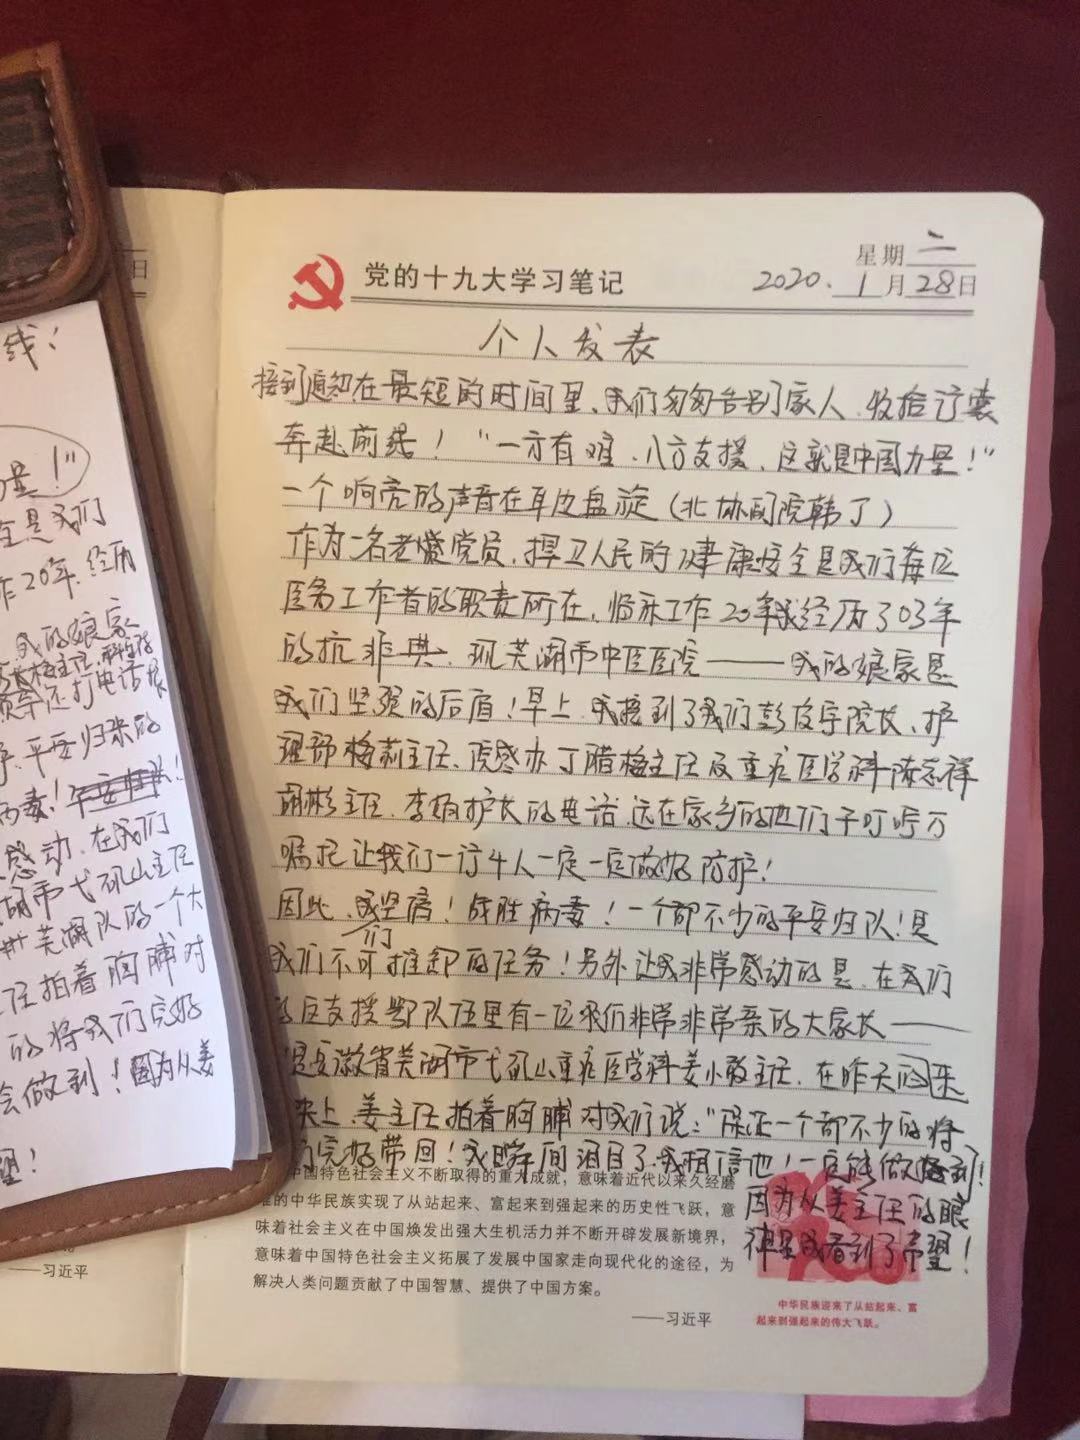 线！
量！"
全是我们
作20年.经历
我的娘家
领导还打电话报
平安归来的
病毒！平安归来！
感动.在我们
湖市弋矶山主任
芜湖队的一个大
任拍着胸脯对
的将我们完好
会做到！因为从姜
望！
——习近平
日
党的十九大学习笔记
星期二
2020.1月28日
个人发表
接到通知在最短的时间里、我们匆匆告别家人.收拾行囊
奔赴前线！"一方有难.八方支援.这就是中国力量！"
一个响亮的声音在耳边盘旋(北协副院韩丁)
作为一名老党员.捍卫人民的健康安全是我们每位
医务工作者的职责所在.临床工作20年我经历了03年
的抗非典.现芜湖市中医医院——我的娘家是
我们坚强的后盾！早上.我接到了我们彭俊宇院长、护
理部梅莉主任、院感办丁腊梅主任及重症医学科陈志祥
胡彬主任.李娟护长的电话.远在家乡的他们千叮咛万
嘱托让我们一行4人一定一定做好防护！
因此.我们坚信！战胜病毒！一个都不少的平安归队！是
我们不可推卸的任务！另外让我非常感动的是.在我们
医支援部队伍里有一位我们非常非常亲的大家长——
是安徽省芜湖市弋矶山重症医学科姜小敢主任.在昨天
来上.姜主任拍着胸脯对我们说："保证一个都不少的将
们完好带回！我瞬间泪目了.我相信他！一定能做得到！
因为从姜主任的眼
神里我看到了希望！
中国特色社会主义不断取得的重大成就，意味着近代以来久经磨
难的中华民族实现了从站起来、富起来到强起来的历史性飞跃，意
味着社会主义在中国焕发出强大生机活力并不断开辟发展新境界，
意味着中国特色社会主义拓展了发展中国家走向现代化的途径，为
解决人类问题贡献了中国智慧、提供了中国方案。
——习近平
中华民族迎来了从站起来、富
起来到强起来的伟大飞跃。